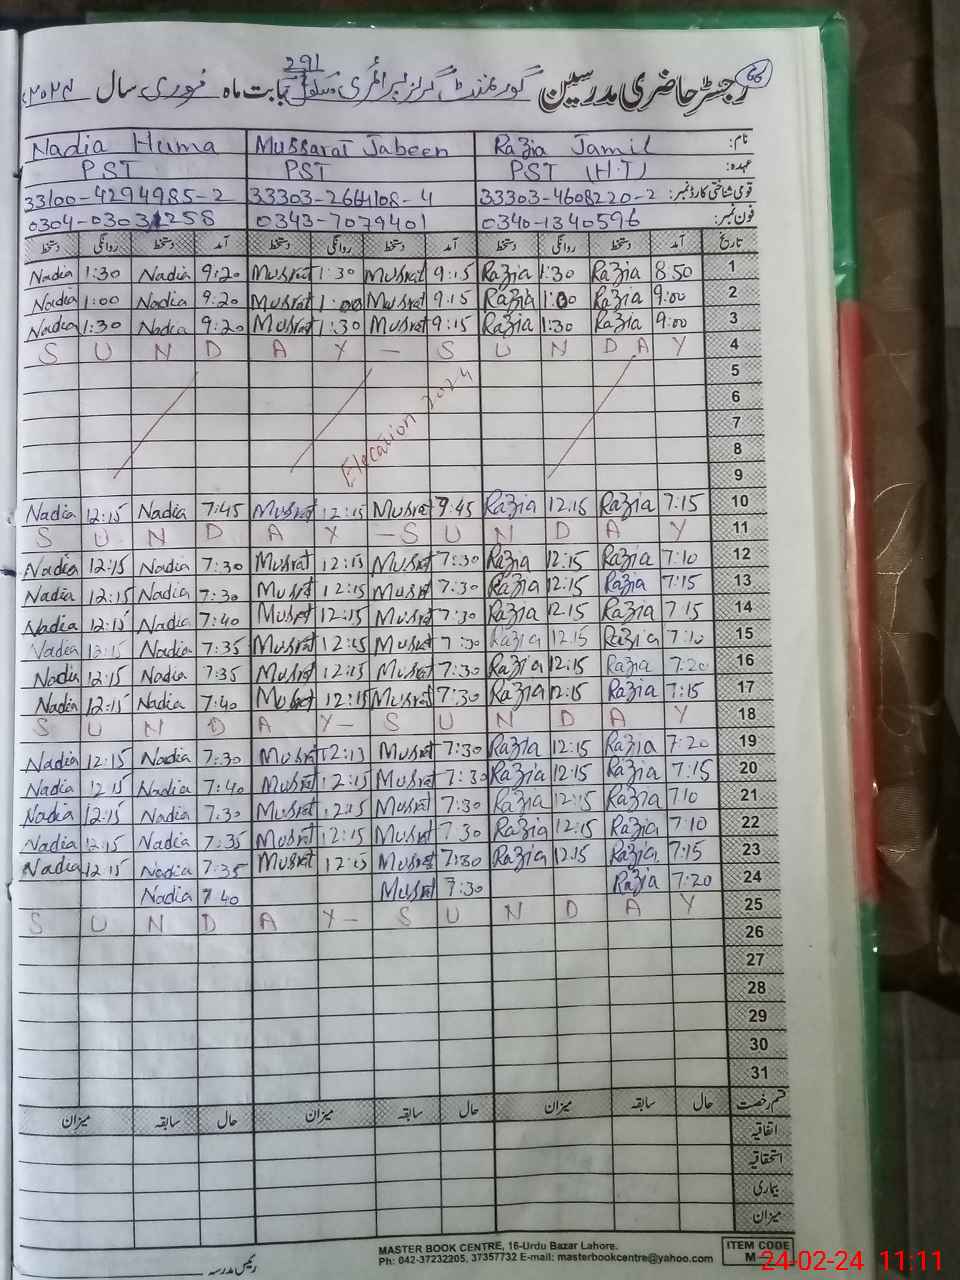 66
291
رجسٹر حاضری مدرسین گورنمنٹ گرلز پرائمری سکول بابت ماہ فروری سال ۲۰۲۴ء
نام: Razia Jamil Mussarat Jabeen Nadia Huma
عہدہ: PST (H.T) PST PST
قومی شناختی کارڈ نمبر: 33303-4608220-2 33303-2664108-4 33100-4294985-2
فون نمبر: 0340-1340596 0343-7079401 0304-0303258
تاریخ آمد دستخط روانگی دستخط آمد دستخط روانگی دستخط آمد دستخط روانگی دستخط
Nadia 1:30 Nadia 9:20 Musrat 1:30 Musrat 9:15 Razia 1:30 Razia 8:50 1
Nadia 1:00 Nadia 9:20 Musrat 1:00 Musrat 9:15 Razia 1:00 Razia 9:00 2
Nadia 1:30 Nadia 9:20 Musrat 1:30 Musrat 9:15 Razia 1:30 Razia 9:00 3
S U N D A Y - S U N D A Y 4
5
Elecation 2024 6
7
8
9
Nadia 12:15 Nadia 7:45 Musrat 12:15 Musrat 7:45 Razia 12:15 Razia 7:15 10
S U N D A Y - S U N D A Y 11
Nadia 12:15 Nadia 7:30 Musrat 12:15 Musrat 7:30 Razia 12:15 Razia 7:10 12
Nadia 12:15 Nadia 7:30 Musrat 12:15 Musrat 7:30 Razia 12:15 Razia 7:15 13
Nadia 12:15 Nadia 7:40 Musrat 12:15 Musrat 7:30 Razia 12:15 Razia 7:15 14
Nadia 12:15 Nadia 7:35 Musrat 12:15 Musrat 7:30 Razia 12:15 Razia 7:10 15
Nadia 12:15 Nadia 7:35 Musrat 12:15 Musrat 7:30 Razia 12:15 Razia 7:20 16
Nadia 12:15 Nadia 7:40 Musrat 12:15 Musrat 7:30 Razia 12:15 Razia 7:15 17
S U N D A Y - S U N D A Y 18
Nadia 12:15 Nadia 7:30 Musrat 12:15 Musrat 7:30 Razia 12:15 Razia 7:20 19
Nadia 12:15 Nadia 7:40 Musrat 12:15 Musrat 7:30 Razia 12:15 Razia 7:15 20
Nadia 12:15 Nadia 7:30 Musrat 12:15 Musrat 7:30 Razia 12:15 Razia 7:10 21
Nadia 12:15 Nadia 7:35 Musrat 12:15 Musrat 7:30 Razia 12:15 Razia 7:10 22
Nadia 12:15 Nadia 7:35 Musrat 12:15 Musrat 7:30 Razia 12:15 Razia 7:15 23
Nadia 7:40 Musrat 7:30 Razia 7:20 24
S U N D A Y - S U N D A Y 25
26
27
28
29
30
31
قسم رخصت حال سابقہ میزان حال سابقہ میزان حال سابقہ میزان
اتفاقیہ
استحقاقیہ
بیماری
میزان
رئیس مدرسہ
MASTER BOOK CENTRE, 16-Urdu Bazar Lahore.
Ph: 042-37232205, 37357732 E-mail: masterbookcentre@yahoo.com
ITEM CODE
M
24-02-24 11:11